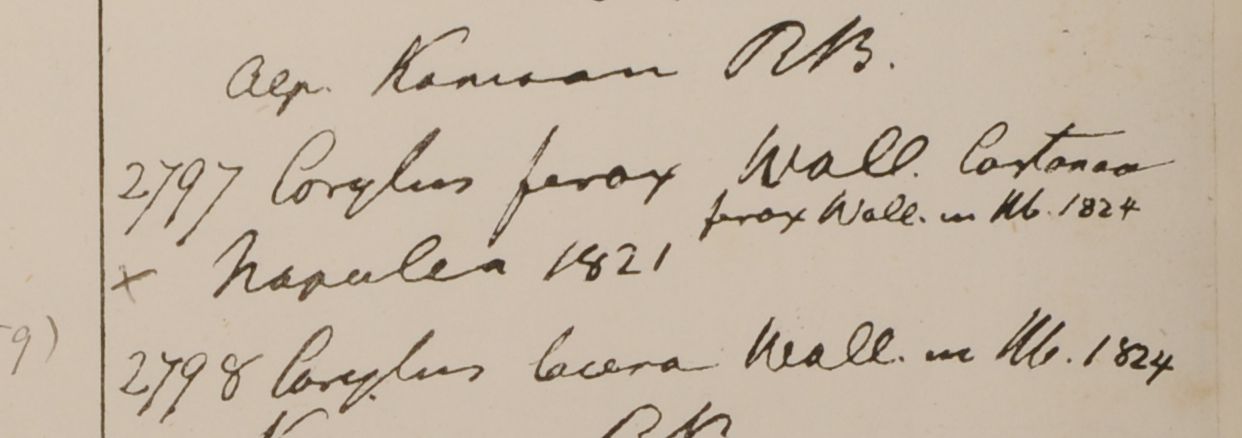 Alp. Kamaon R B.
2797 Corylus ferox Wall. Castanea
ferox Wall. in Hb. 1824
x Napalea 1821
9)
2798 Corylus lacera Wall. in Hb. 1824